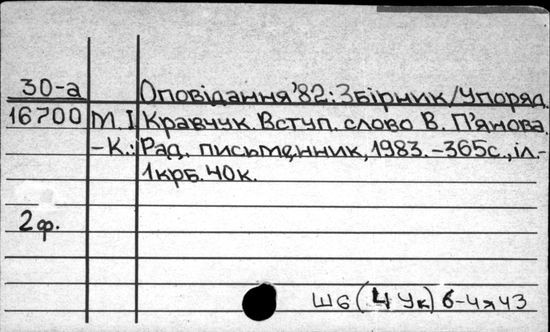 30-а Оповідання'82: Збірник/Упоряд.
16700 М.І. Кравчук. Вступ. слово В. П'янова.
-К.: Рад. письменник, 1983. -365с., іл.-
1крб. 40к.
2ф.
Ш6(4Ук)6-4я43